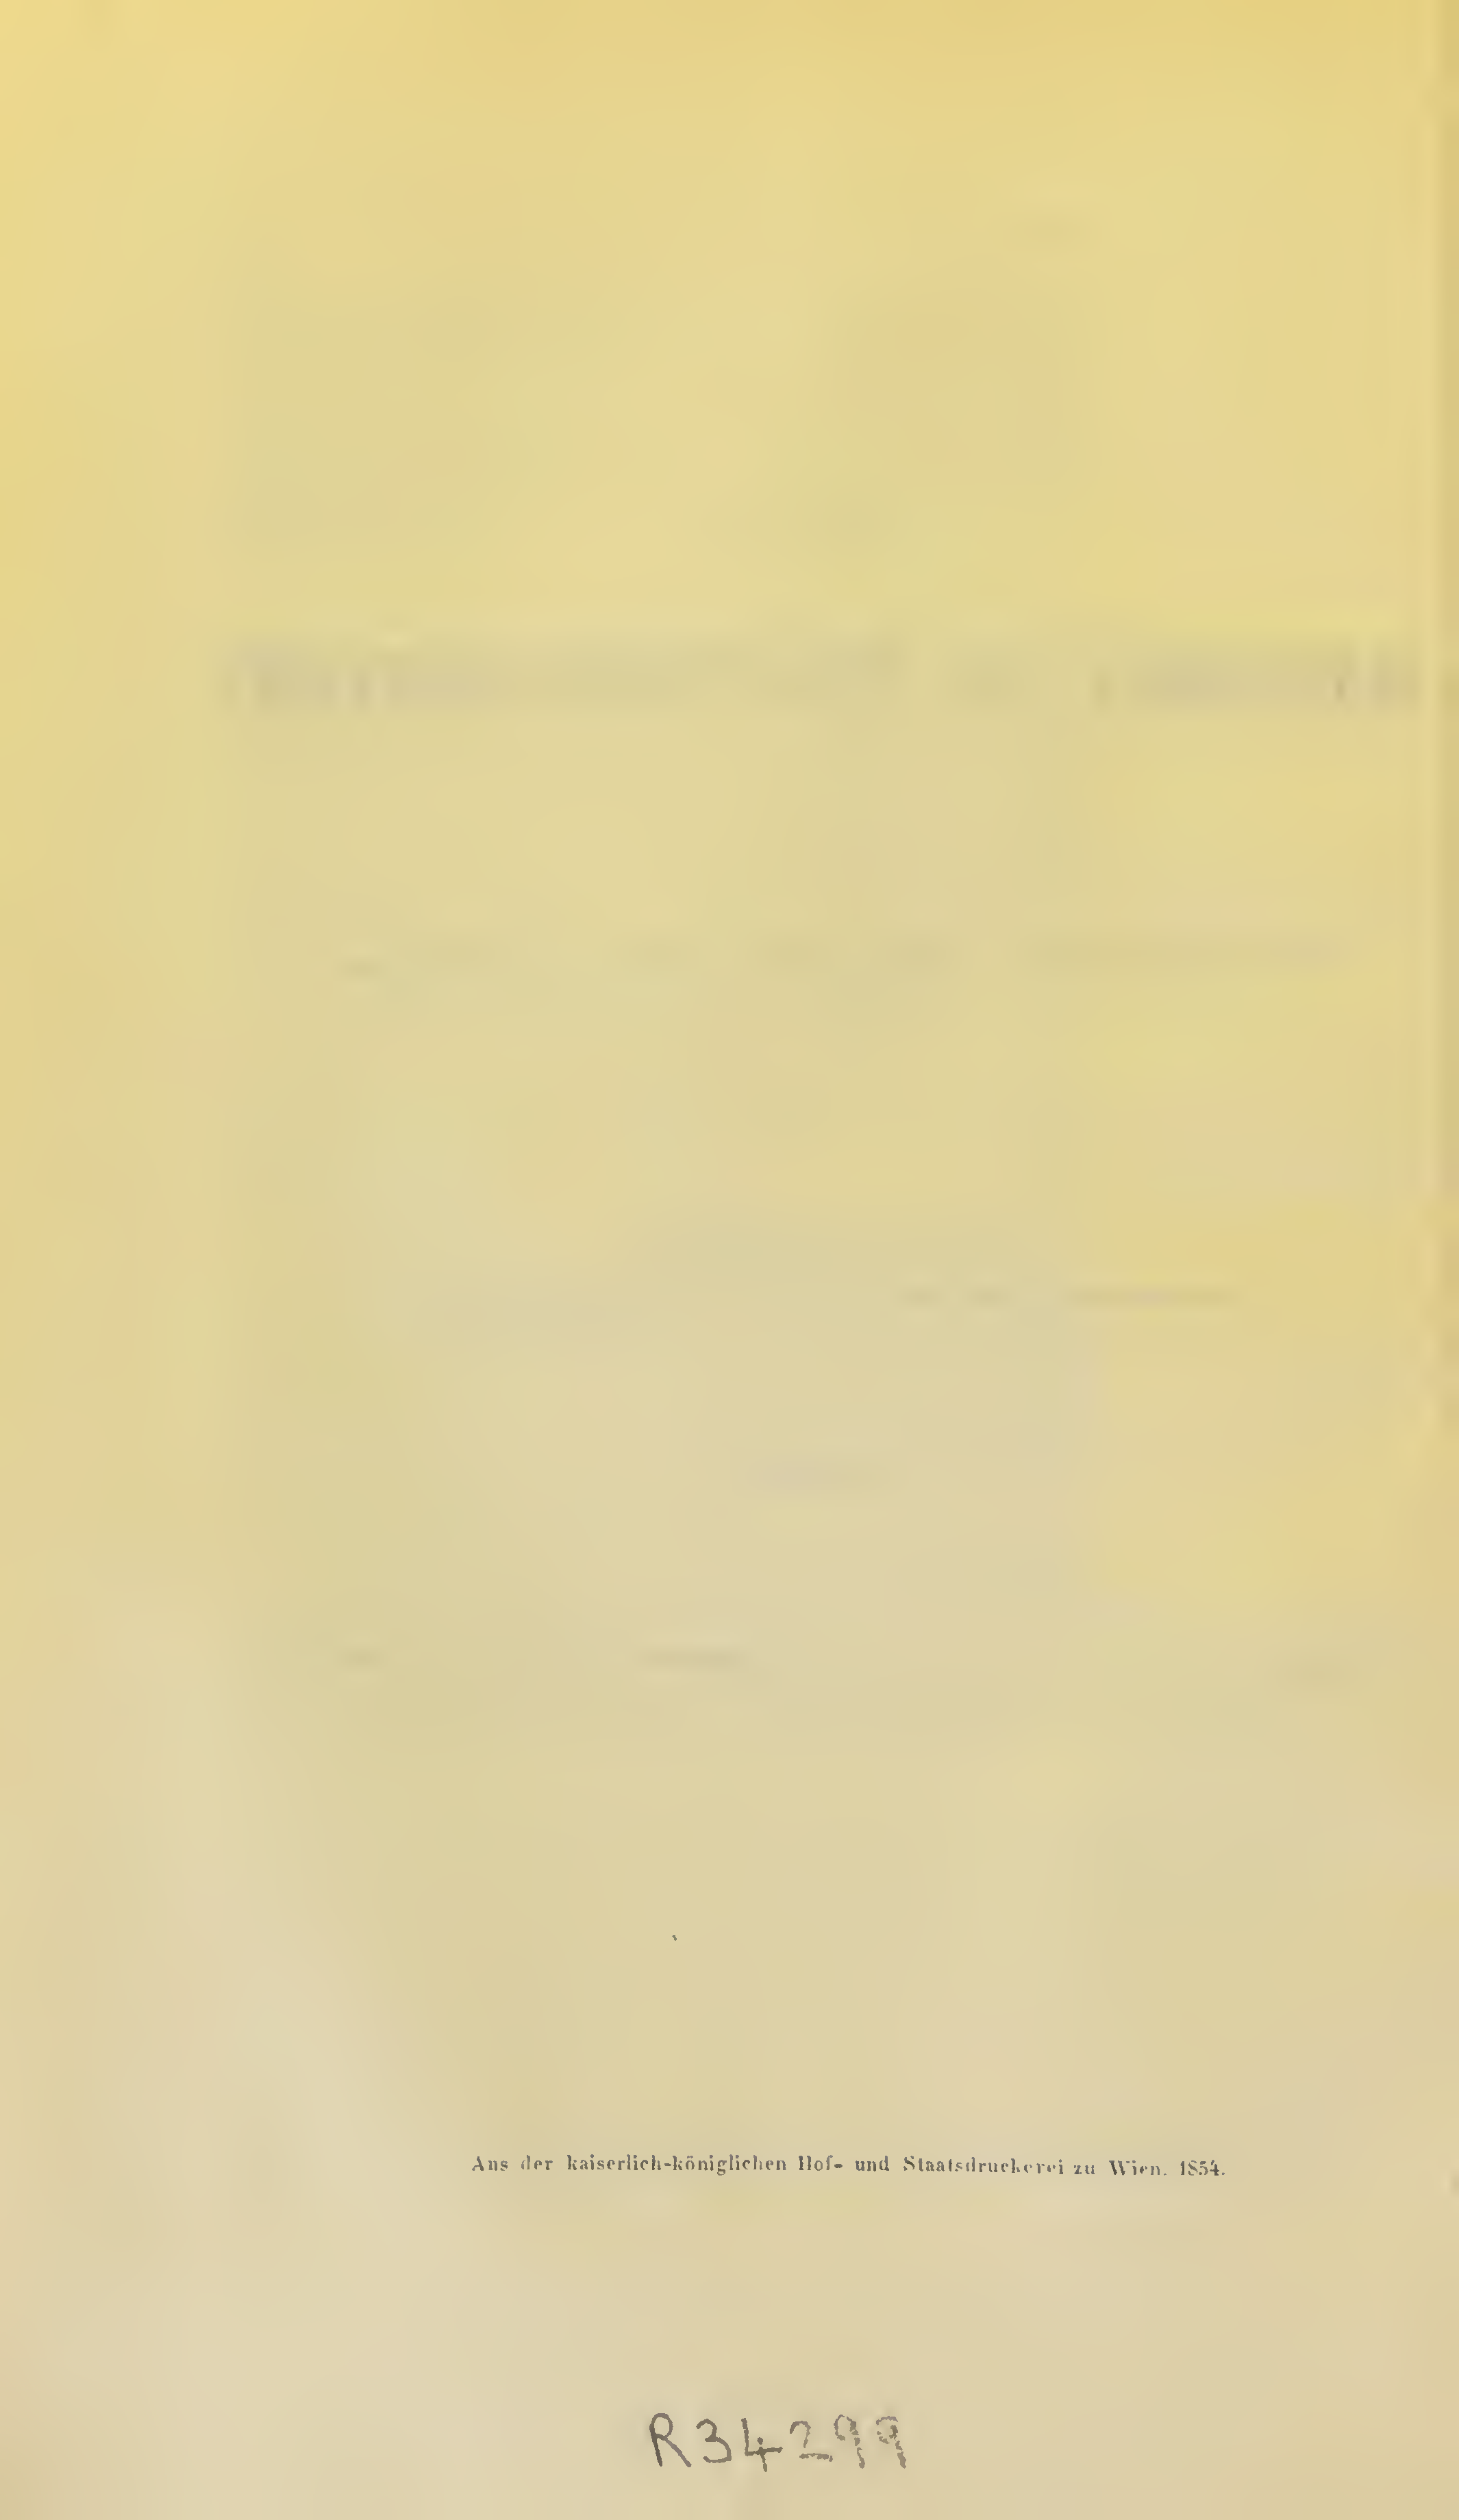 Aus der kaiserlich-königlichen Hof- und Staatsdruckerei zu Wien. 1854.
R34299